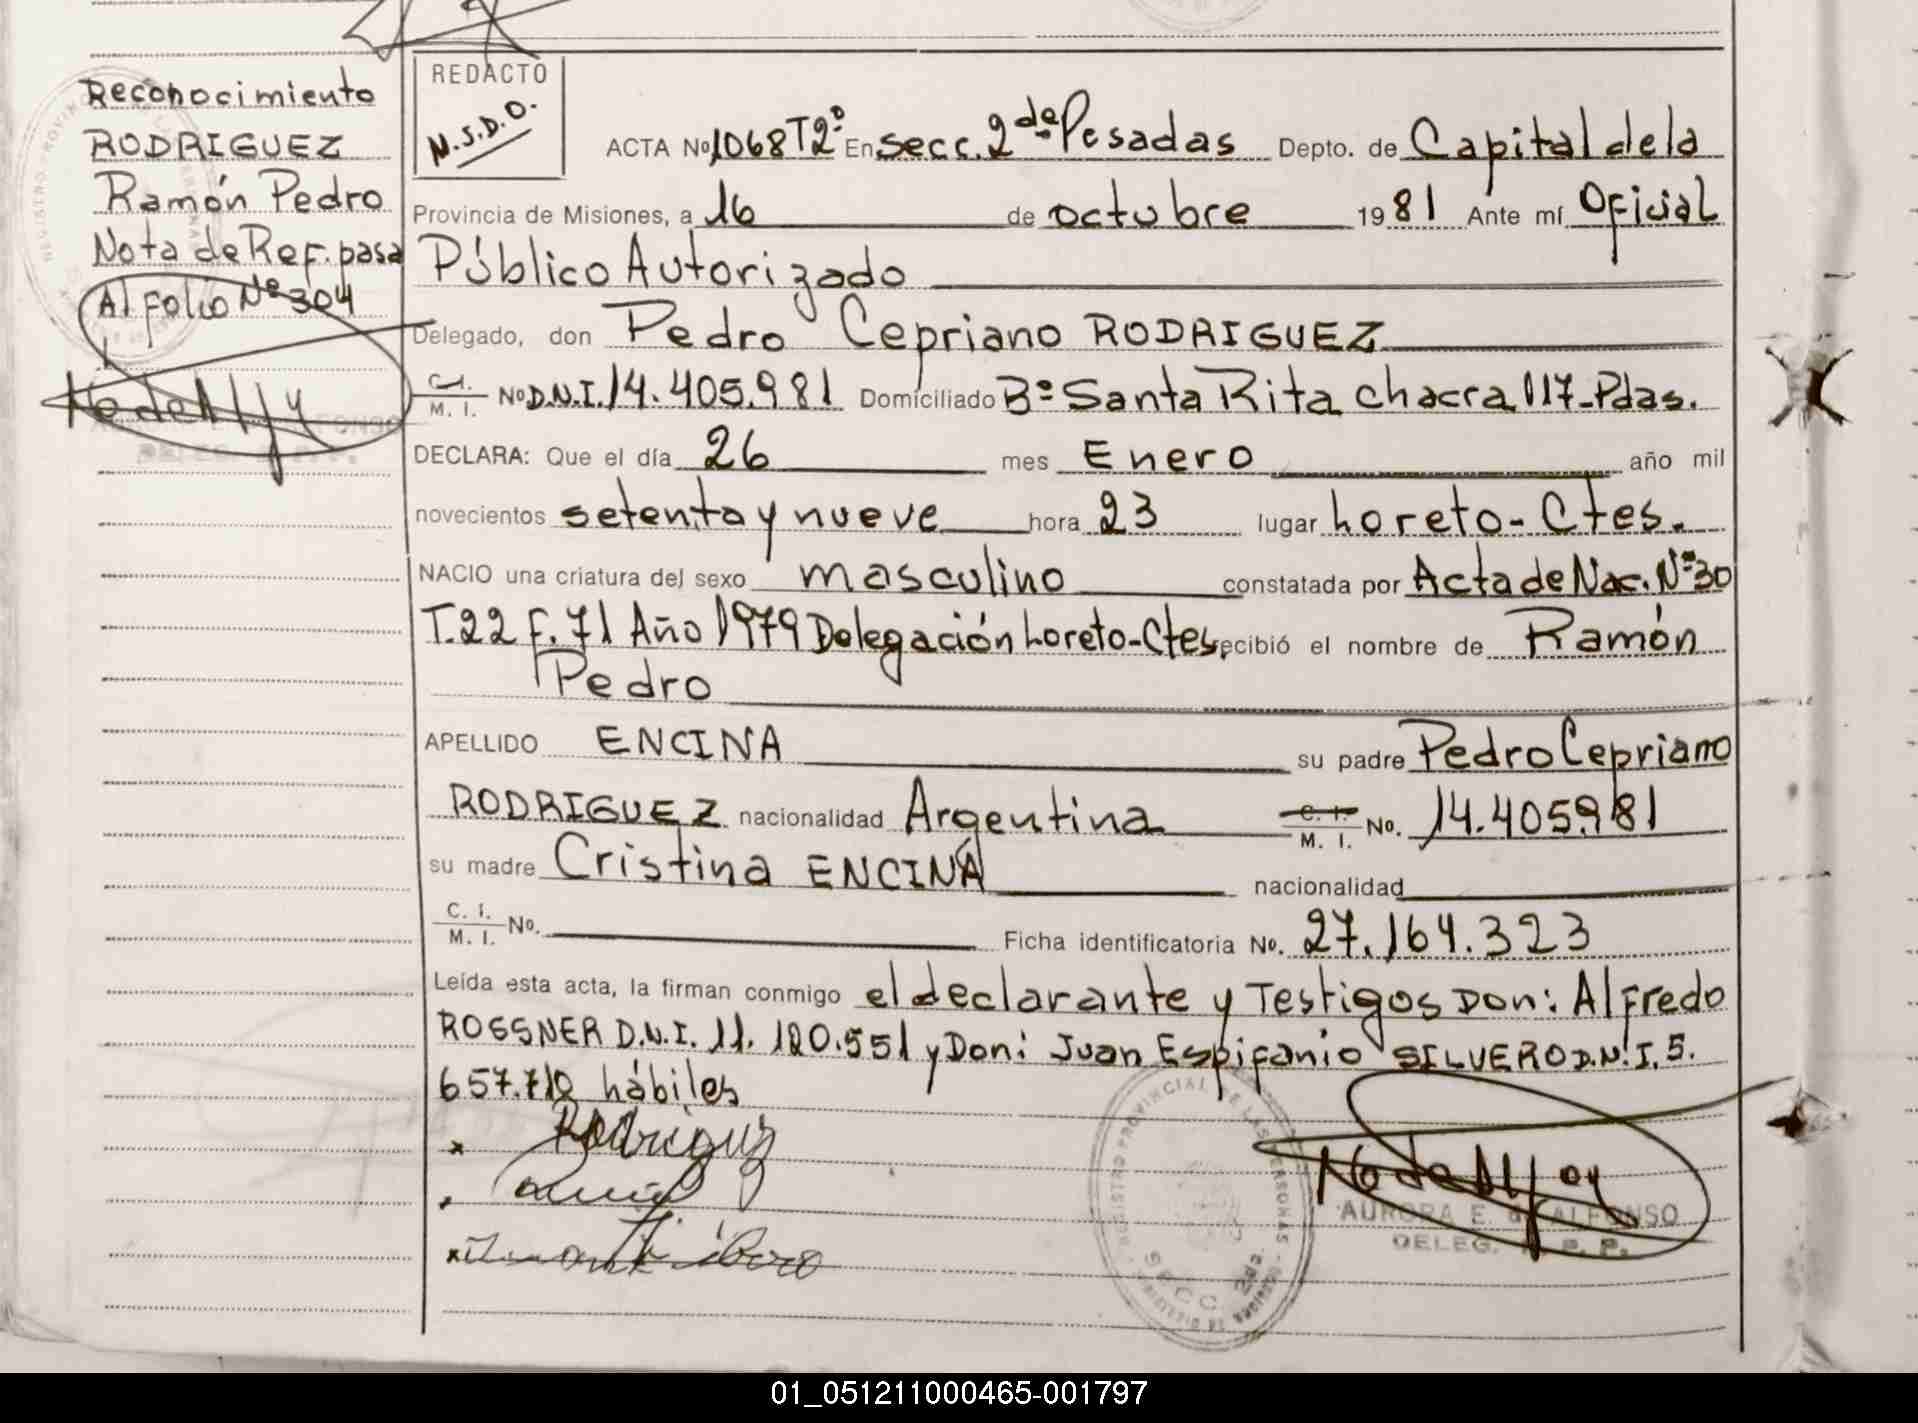 Reconocimiento
RODRIGUEZ
Ramón Pedro
Nota de Ref. pasa
Al folio Nº 304
REDACTO
N.S.D.O.
ACTA No 1068 T2º En secc. 2da Posadas Depto. de Capital de la
Provincia de Misiones, a 16 de octubre 1981 Ante mí Oficial
Público Autorizado
Delegado, don Pedro Cepriano RODRIGUEZ
C.I. M. I. No D.N.I. 14.405.981 Domiciliado Bº Santa Rita chacra 117-Pdas.
DECLARA: Que el día 26 mes Enero año mil
novecientos setenta y nueve hora 23 lugar Loreto-Ctes.
NACIO una criatura del sexo masculino constatada por Acta de Nac. Nº 30
T.22 F.71 Año 1979 Delegación Loreto-Ctes. recibió el nombre de Ramón
Pedro
APELLIDO ENCINA su padre Pedro Cepriano
RODRIGUEZ nacionalidad Argentina C. I. M. I. No. 14.405.981
su madre Cristina ENCINA nacionalidad
C. I. M. I. No. Ficha identificatoria No. 27.164.323
Leída esta acta, la firman conmigo el declarante y Testigos Don: Alfredo
ROSSNER D.N.I. 11. 120.551 y Don: Juan Espifanio SILVERO D.N.I. 5.
657.712 hábiles
Rodriguez
REGISTRO PROVINCIAL DE LAS PERSONAS
SECC. 2da.
AURORA E. ALFONSO
DELEG. P. P.
01_051211000465-001797